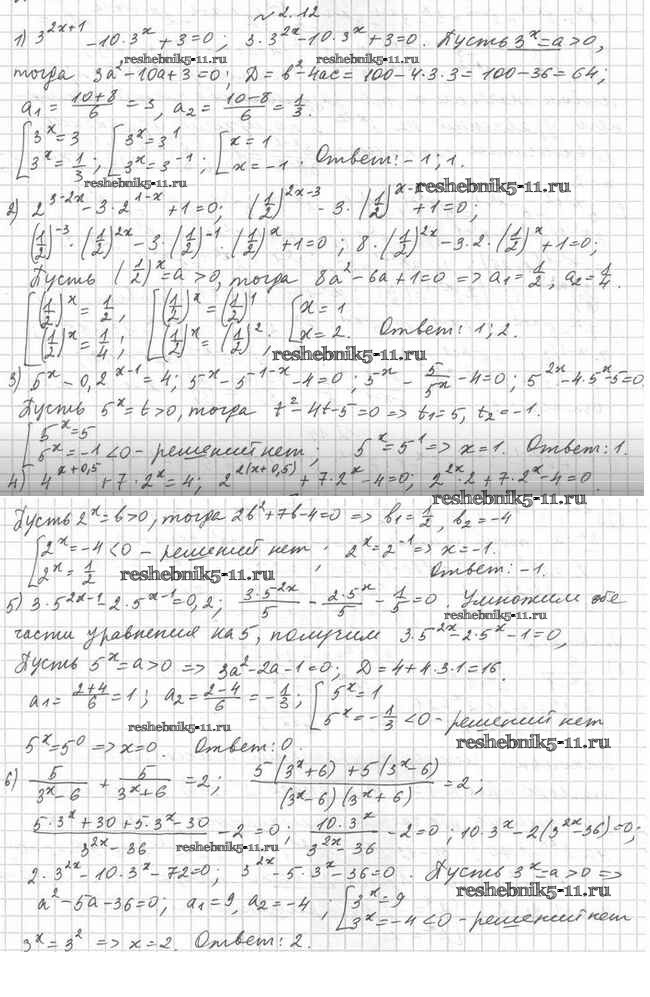 №2.12
1) 3^{2x+1} -10·3^x +3=0; 3·3^{2x}-10·3^x+3=0. Пусть 3^x=a>0,
reshebnik5-11.ru reshebnik5-11.ru
тогда 3a²-10a+3=0; D=b²-4ac=100-4·3·3=100-36=64;
a₁=(10+8)/6=3, a₂=(10-8)/6=1/3.
[3^x=3 [3^x=3^1 [x=1
[3^x=1/3; [3^x=3^{-1}; [x=-1. Ответ: -1; 1.
reshebnik5-11.ru reshebnik5-11.ru
2) 2^{3-2x}-3·2^{1-x}+1=0; (1/2)^{2x-3} -3·(1/2)^{x-1}+1=0;
(1/2)^{-3}·(1/2)^{2x}-3·(1/2)^{-1}·(1/2)^x+1=0; 8·(1/2)^{2x}-3·2·(1/2)^x+1=0;
Пусть (1/2)^x=a>0, тогда 8a²-6a+1=0 => a₁=1/2, a₂=1/4.
[(1/2)^x=1/2, [(1/2)^x=(1/2)^1 [x=1
[(1/2)^x=1/4; [(1/2)^x=(1/2)^2; [x=2. Ответ: 1; 2.
reshebnik5-11.ru
3) 5^x-0,2^{x-1}=4; 5^x-5^{1-x}-4=0; 5^x-5/5^x-4=0; 5^{2x}-4·5^x-5=0
Пусть 5^x=t>0, тогда t²-4t-5=0 => t₁=5, t₂=-1.
[5^x=5
[5^x=-1<0 - решений нет; 5^x=5^1 => x=1. Ответ: 1.
4) 4^{x+0,5}+7·2^x=4; 2^{2(x+0,5)}+7·2^x-4=0; 2^{2x}·2+7·2^x-4=0.
reshebnik5-11.ru
Пусть 2^x=b>0, тогда 2b²+7b-4=0 => b₁=1/2, b₂=-4
[2^x=-4<0 - решений нет; 2^x=2^{-1} => x=-1.
[2^x=1/2 reshebnik5-11.ru Ответ: -1.
5) 3·5^{2x-1}-2·5^{x-1}=0,2; 3·5^{2x}/5-2·5^x/5-1/5=0. Умножим обе
reshebnik5-11.ru
части уравнения на 5, получим 3·5^{2x}-2·5^x-1=0,
Пусть 5^x=a>0 => 3a²-2a-1=0; D=4+4·3·1=16.
a₁=(2+4)/6=1; a₂=(2-4)/6=-1/3; [5^x=1
[5^x=-1/3<0 - решений нет
reshebnik5-11.ru reshebnik5-11.ru
5^x=5^0 => x=0. Ответ: 0.
6) 5/(3^x-6)+5/(3^x+6)=2; (5(3^x+6)+5(3^x-6))/((3^x-6)(3^x+6))=2;
(5·3^x+30+5·3^x-30)/(3^{2x}-36)-2=0; 10·3^x/(3^{2x}-36)-2=0; 10·3^x-2(3^{2x}-36)=0;
reshebnik5-11.ru
2·3^{2x}-10·3^x-72=0; 3^{2x}-5·3^x-36=0. Пусть 3^x=a>0 =>
reshebnik5-11.ru
a²-5a-36=0; a₁=9, a₂=-4; [3^x=9
[3^x=-4<0 - решений нет
3^x=3^2 => x=2. Ответ: 2.